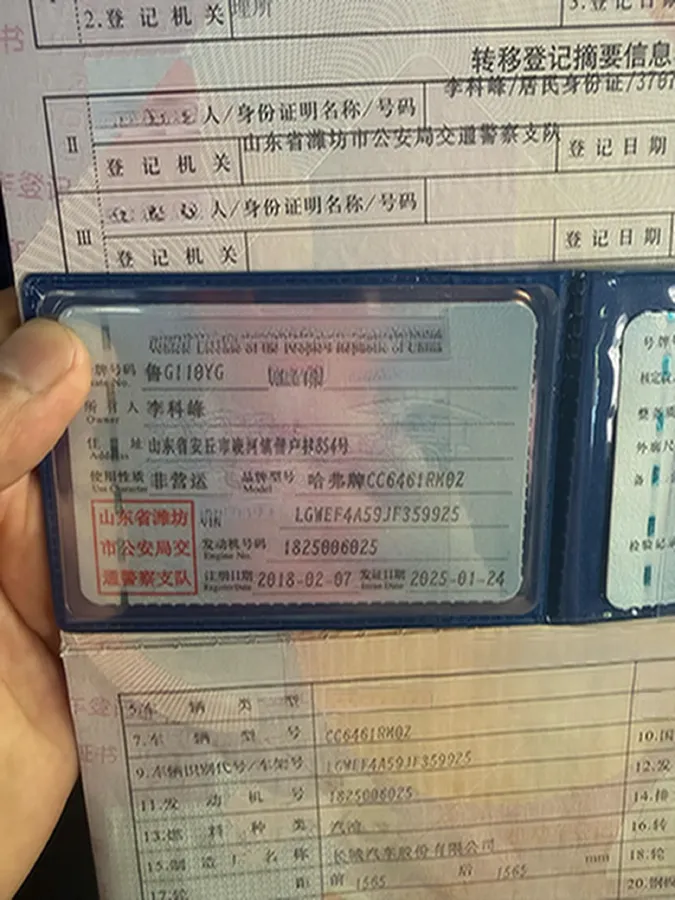 2.登记机关
理所
3.登记日期
转移登记摘要信息
李科峰/居民身份证/3707
II
人/身份证明名称/号码
山东省潍坊市公安局交通警察支队
登记机关
登记日期
III
人/身份证明名称/号码
登记机关
登记日期
Vehicle License of the People's Republic of China
号牌号码 鲁G118YG
Plate No.
所有人 李科峰
Owner
住址 山东省安丘市
854号
Address
使用性质 非营运 品牌型号 哈弗牌CC6461RM0Z
Use Character Model
山东省潍坊市公安局交通警察支队
VIN LGWEF4A59JF359925
发动机号码 1825006025
Engine No.
注册日期 2018-02-07 发证日期 2025-01-24
Register Date Issue Date
号牌
核定
整备
外廓尺
备
检验记录
5.车辆类型
7.车辆型号 CC6461RM0Z
10.国
9.车辆识别代号/车架号 LGWEF4A59JF359925
12.发
11.发动机号 1825006025
14.排
13.燃料种类 汽油
16.转
15.制造厂名称 长城汽车股份有限公司
18.轮
17.轮距 前 1565 后 1565 mm
20.钢板